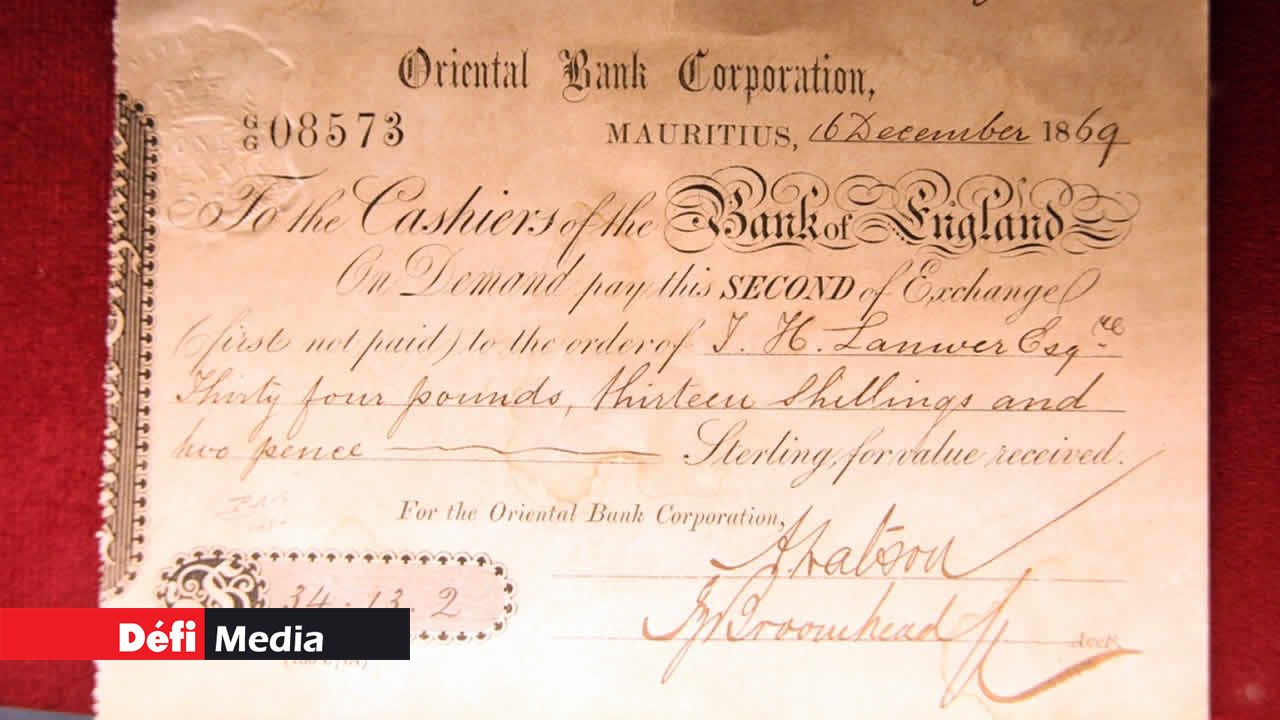 Oriental Bank Corporation,
G/G 08573
MAURITIUS, 16 December 1869
To the Cashiers of the Bank of England
On Demand pay this SECOND of Exchange
(first not paid) to the order of T. H. Lanwer Esqre
Thirty four pounds, thirteen Shillings and
two pence Sterling, for value received.
For the Oriental Bank Corporation,
£ 34 . 13 . 2
Broomhead
Acct.
Défi Media